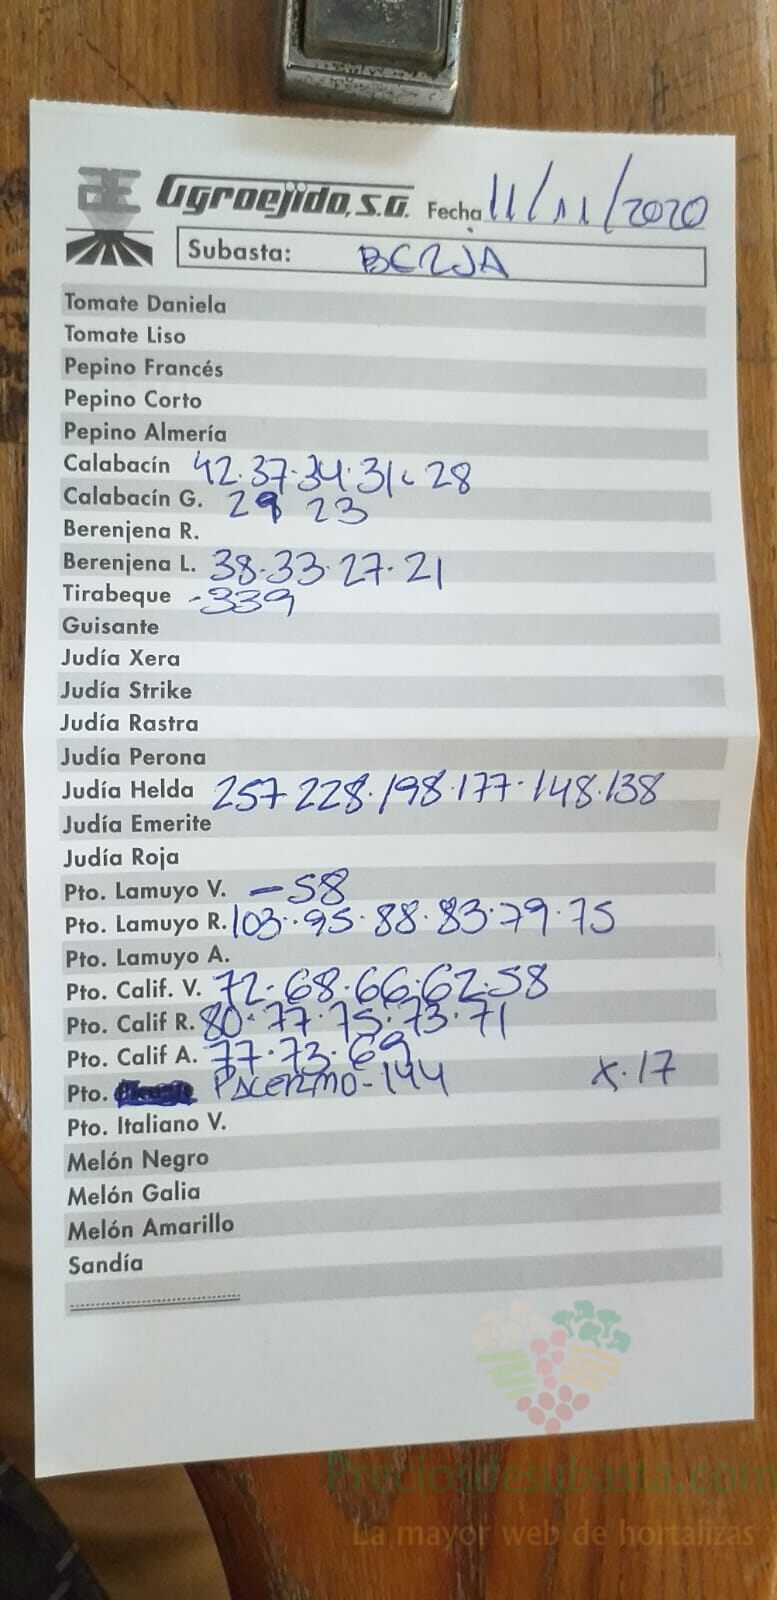 Agroejido, S.A. Fecha 11/11/2020
Subasta: BERJA
Tomate Daniela
Tomate Liso
Pepino Francés
Pepino Corto
Pepino Almería
Calabacín 42·37·34·31·28
Calabacín G. 29 23
Berenjena R.
Berenjena L. 38·33·27·21
Tirabeque -339
Guisante
Judía Xera
Judía Strike
Judía Rastra
Judía Perona
Judía Helda 257 228·198·177·148·138
Judía Emerite
Judía Roja
Pto. Lamuyo V. -58
Pto. Lamuyo R. 103·95·88·83·79·75
Pto. Lamuyo A.
Pto. Calif. V. 72·68·66·62·58
Pto. Calif R. 80·77·75·73·71
Pto. Calif A. 77·73·69
Pto. PALERMO-144 X·17
Pto. Italiano V.
Melón Negro
Melón Galia
Melón Amarillo
Sandía
Preciosdesubasta.com
La mayor web de hortalizas